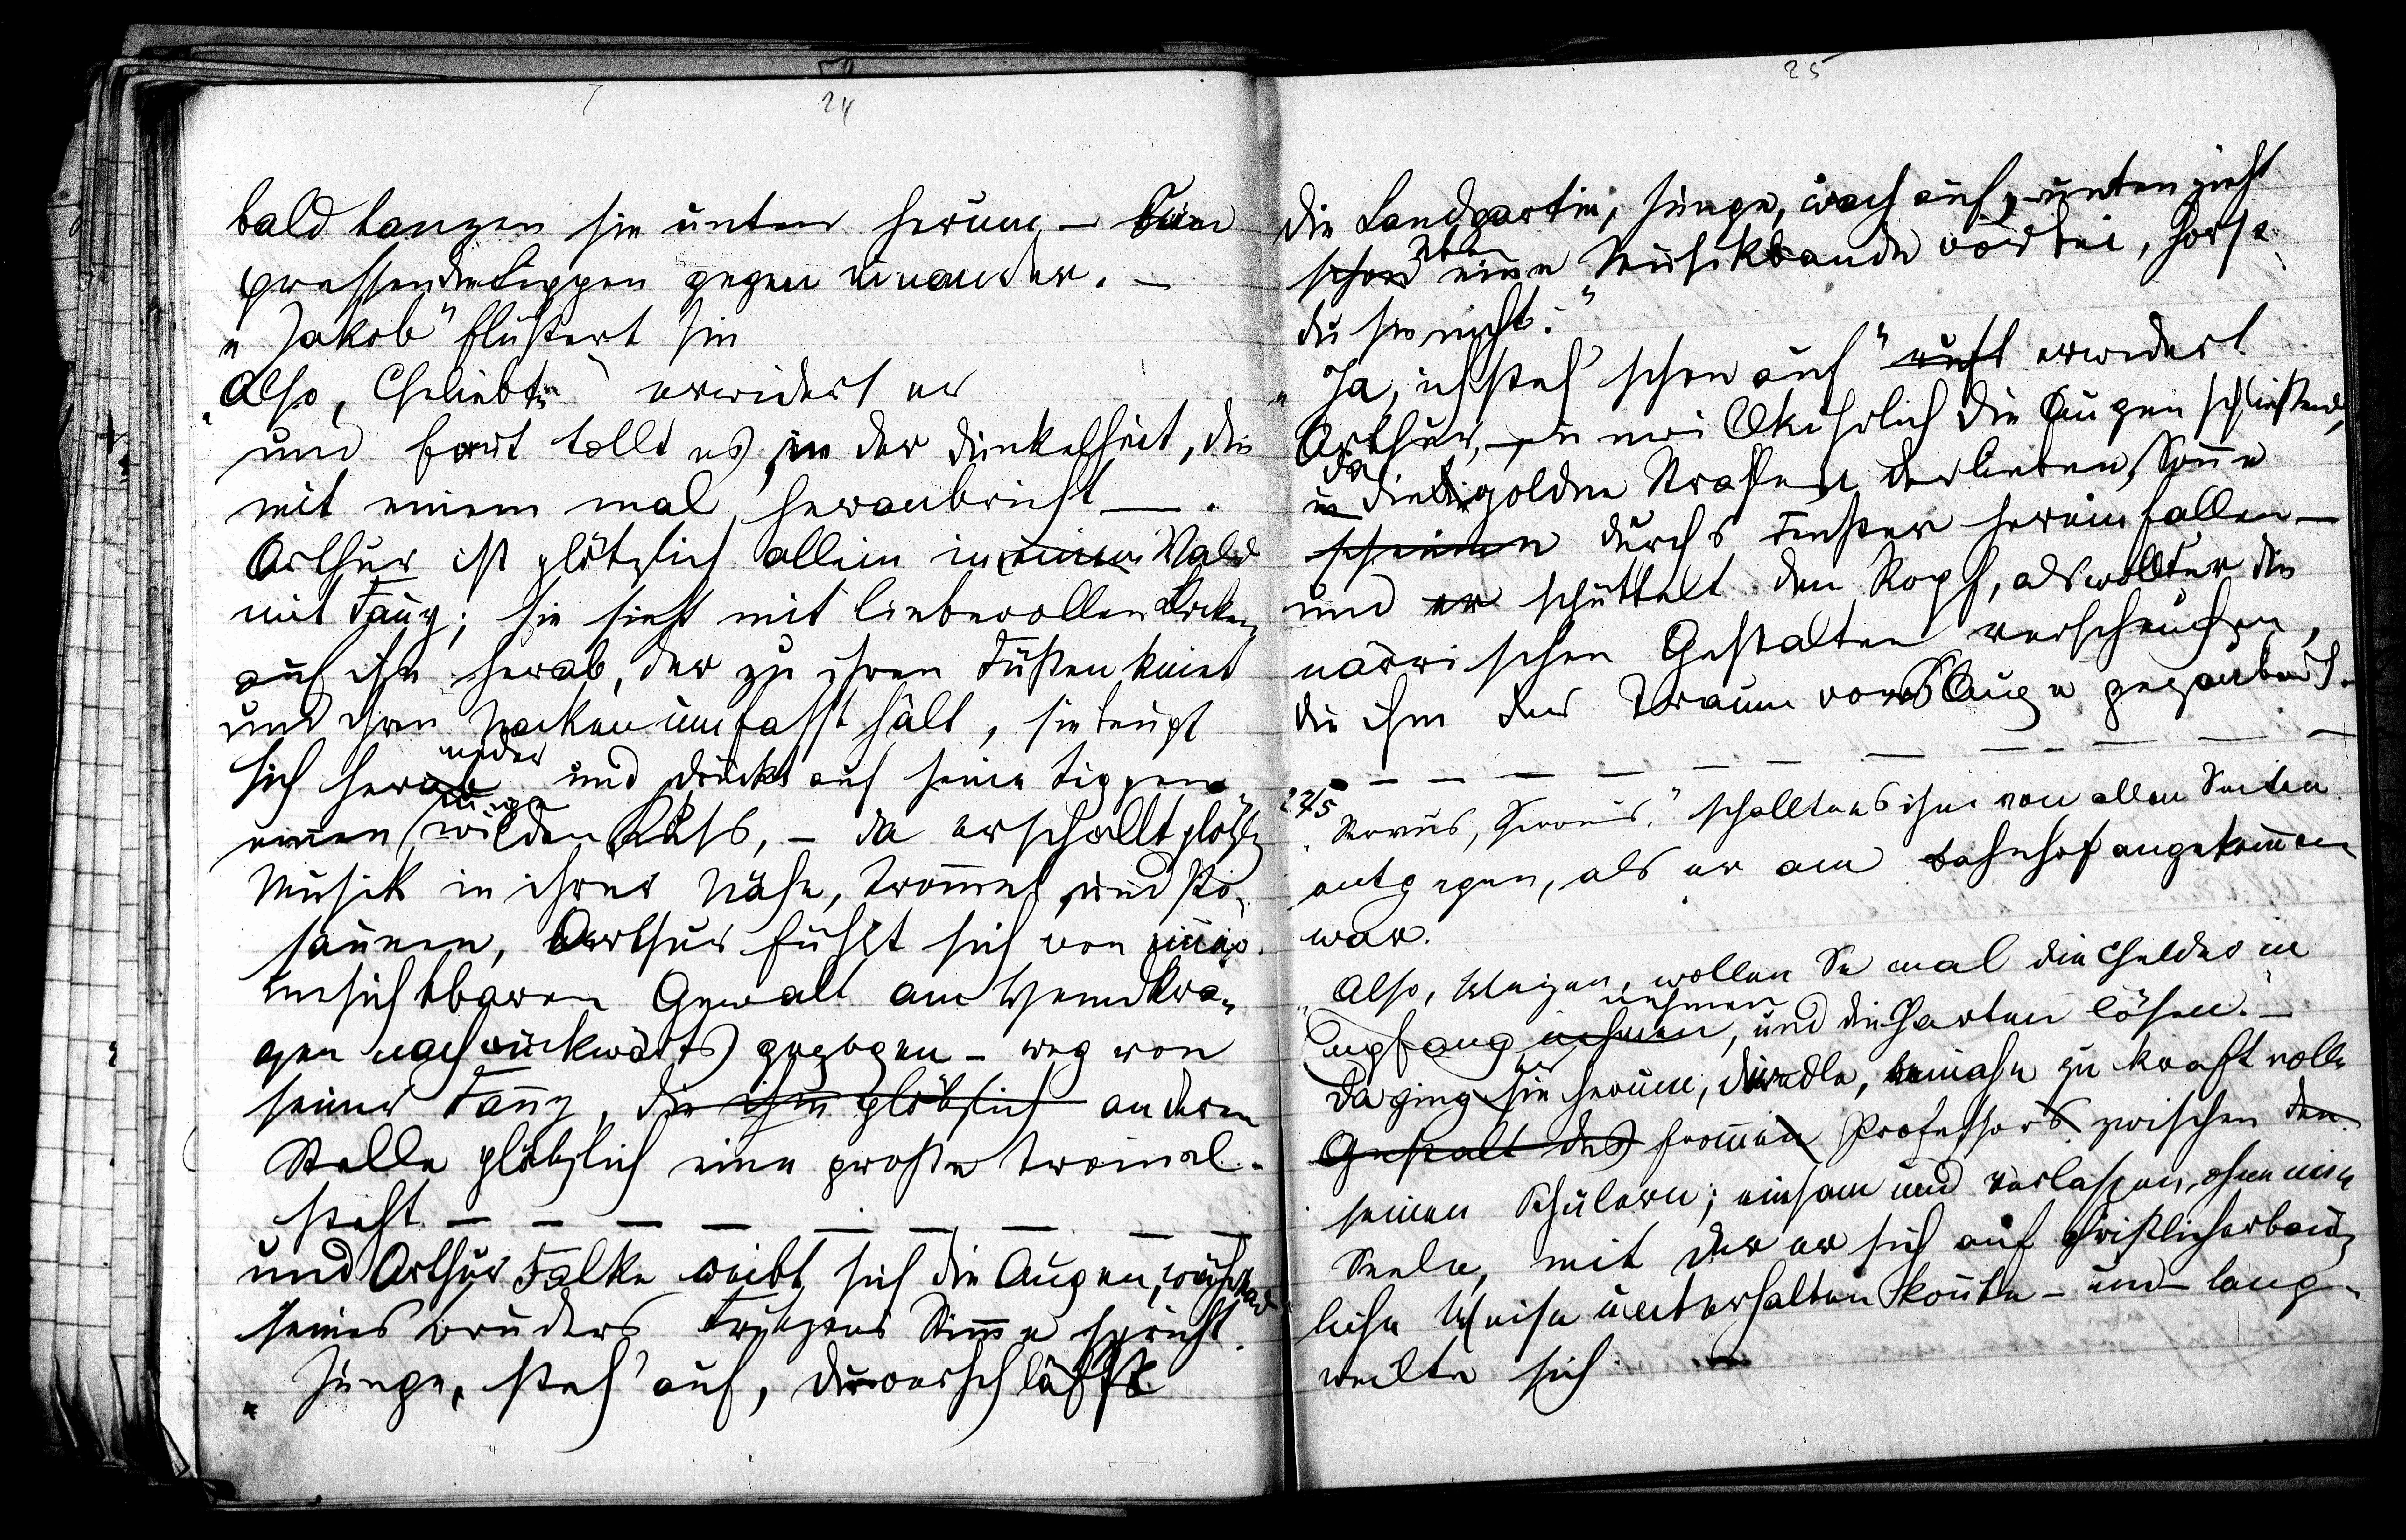 24
bald tanzen sie unten herum –
pressen die Lippen gegen einander. –
„Jakob" flüstert sie
„Also, Geliebte" erwidert er
und fort tollt es in der Dunkelheit, die
mit einem mal hereinbricht — .
Arthur ist plötzlich allein im Wald
mit Fanny; sie sieht mit liebevollen Blicken
auf ihn herab, der zu ihren Füßen kniet
und ihren Nacken umfasst hält, sie beugt
nieder
sich herab und drückt auf seine Lippen
einen wilden Kuss, – da erschallt plötzl
Musik in ihrer Nähe, Trommel und Po-
saunen, Arthur fühlt sich von einer
unsichtbaren Gewalt am Hemdkra-
gen nach rückwärts gezogen – weg von
seiner Fanny, die ihm plötzlich an deren
Stelle plötzlich eine große Trommel
steht – – – – – – – –
und Arthur Falke reibt sich die Augen, während
seines Bruders Stimme spricht.
„Junge, steh' auf, du verschläfst
25
die Landpartie, Junge, wach auf, unten zieht
eben
schon eine Musikbande vorbei, hörst
du sie nicht."
„Ja, ich steh' schon auf" ruft erwidert
Arthur, unwillkührlich die Augen schließend,
da
in die goldne Strahlen der lieben Sonne
scheinen durchs Fenster hereinfallen –
und er schüttelt den Kopf, als wollte er die
närrischen Gestalten verscheuchen,
die ihm der Traum vors Auge gezaubert.
– – – – – – – – – –
27/5
„Servus, Servus," schallte es ihm von allen Seiten
entgegen, als er am Bahnhof angekommen
war.
„Also, wollen Sie mal die Gelder in
nehmen
Empfang nehmen, und die Karten lösen." –
Da ging herum, beinahe zu kraftvolle
Gestalt des frommen Professors zwischen den
seinen Schülern; einsam und verlassen, ohne eine
Seele, mit der er sich auf christlich erbau-
liche Weise unterhalten konnte – und lang-
weilte sich